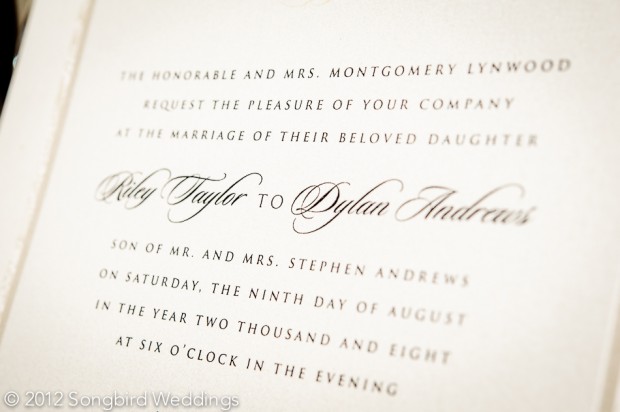 THE HONORABLE AND MRS. MONTGOMERY LYNWOOD
REQUEST THE PLEASURE OF YOUR COMPANY
AT THE MARRIAGE OF THEIR BELOVED DAUGHTER
Riley Taylor TO Dylan Andrews
SON OF MR. AND MRS. STEPHEN ANDREWS
ON SATURDAY, THE NINTH DAY OF AUGUST
IN THE YEAR TWO THOUSAND AND EIGHT
AT SIX O'CLOCK IN THE EVENING
© 2012 Songbird Weddings